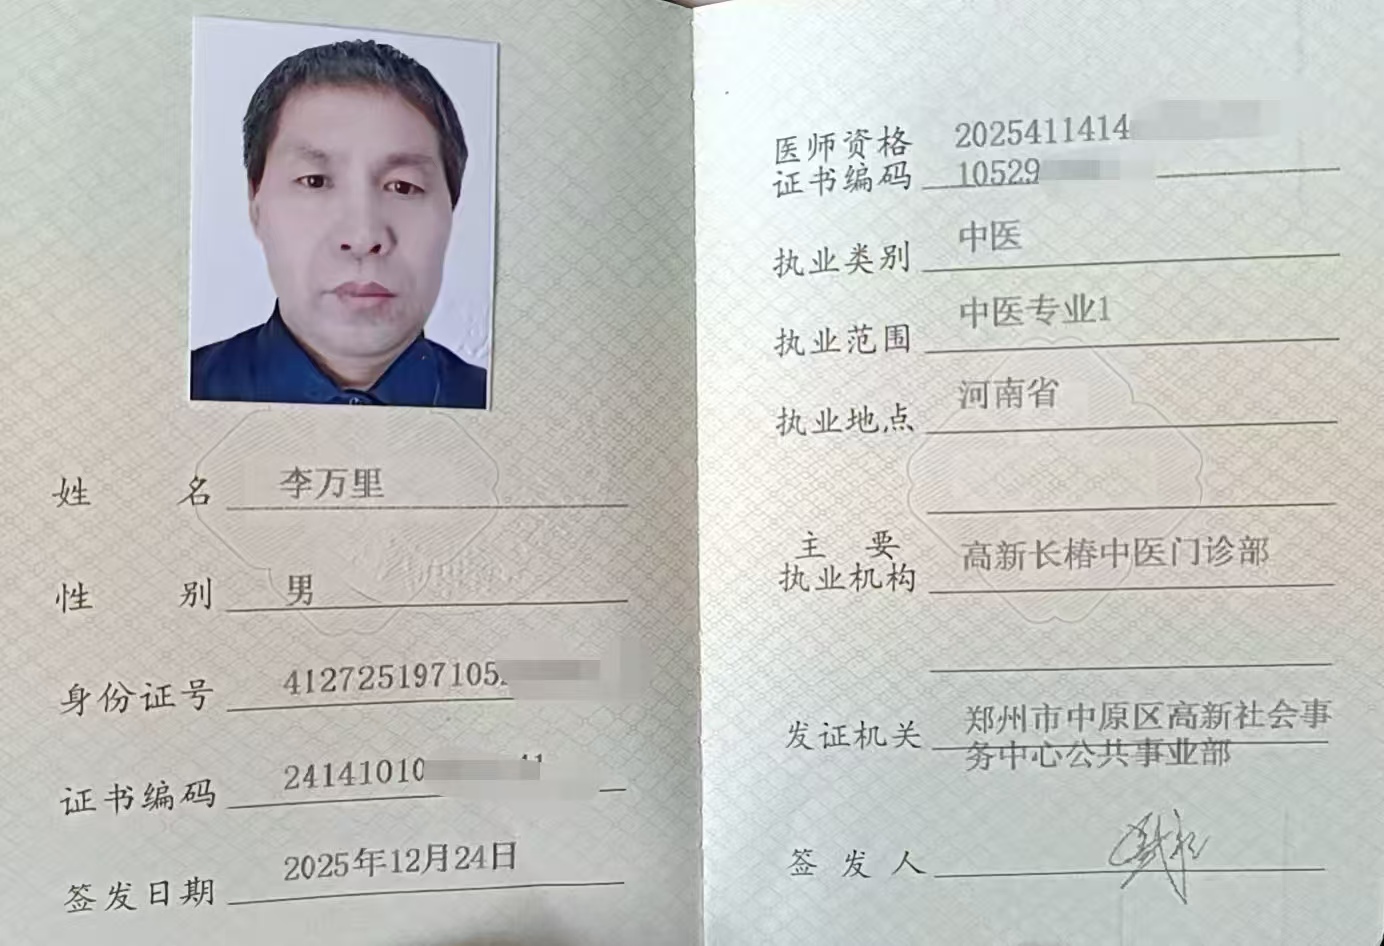 姓 名 李万里
性 别 男
身份证号 412725197105
证书编码 24141010
签发日期 2025年12月24日
医师资格 2025411414
证书编码 10529
执业类别 中医
执业范围 中医专业1
执业地点 河南省
主 要
执业机构 高新长椿中医门诊部
发证机关 郑州市中原区高新社会事
务中心公共事业部
签 发 人